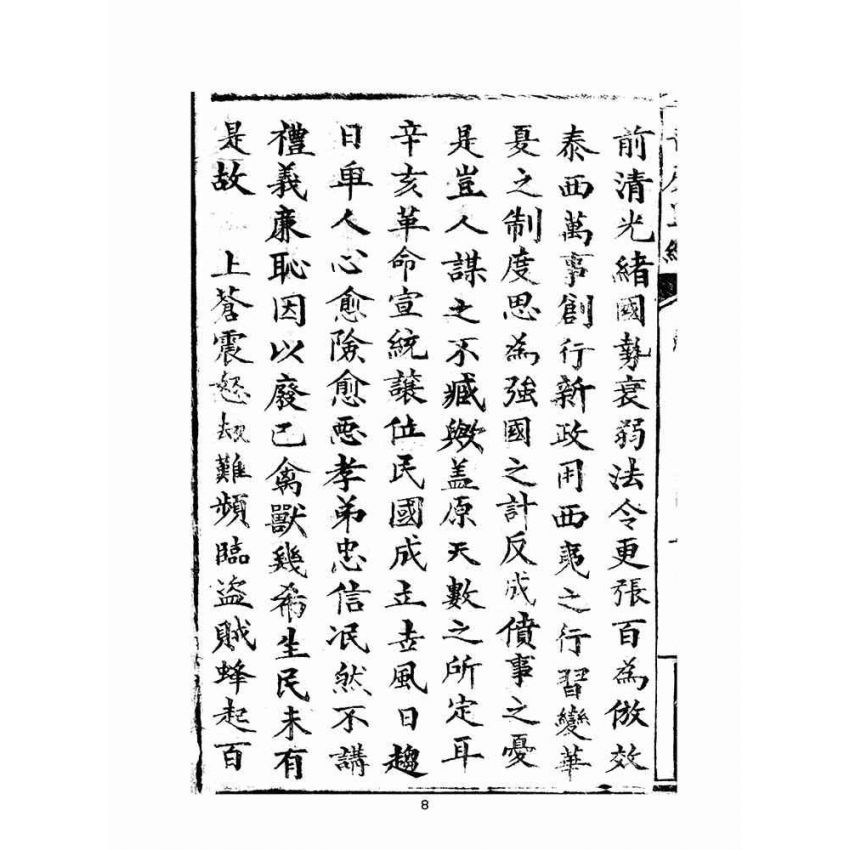 前清光緒國勢衰弱法令更張百為倣效
泰西萬事創行新政用西夷之行習變華
夏之制度思為強國之計反成僨事之憂
是豈人謀之不臧歟盖原天數之所定耳
辛亥革命宣統讓位民國成立士風日趨
日卑人心愈險愈惡孝弟忠信泯然不講
禮義廉恥因以廢已禽獸幾希生民未有
是故　上蒼震怒劫難頻臨盜賊蜂起百
8